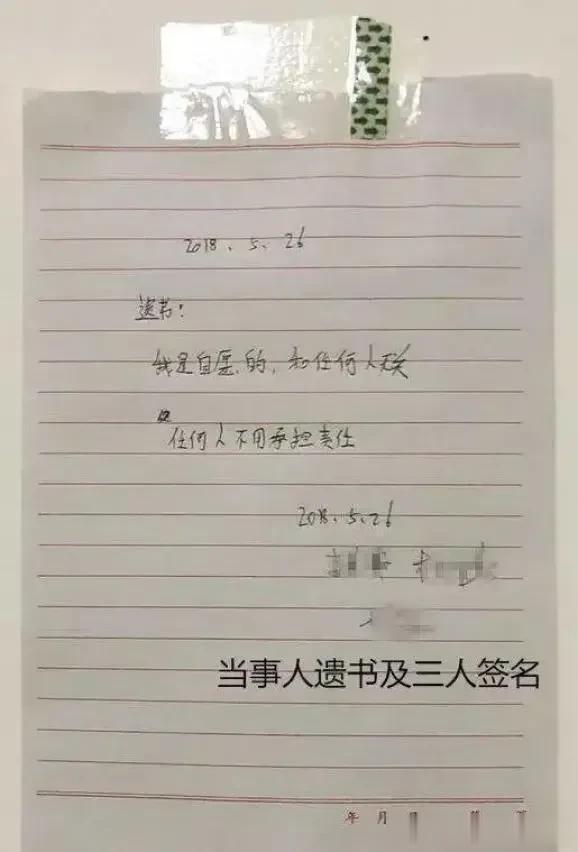 2018.5.26
遗书:
我是自愿的,和任何人无关
任何人不用承担责任
2018.5.26
当事人遗书及三人签名
年 月